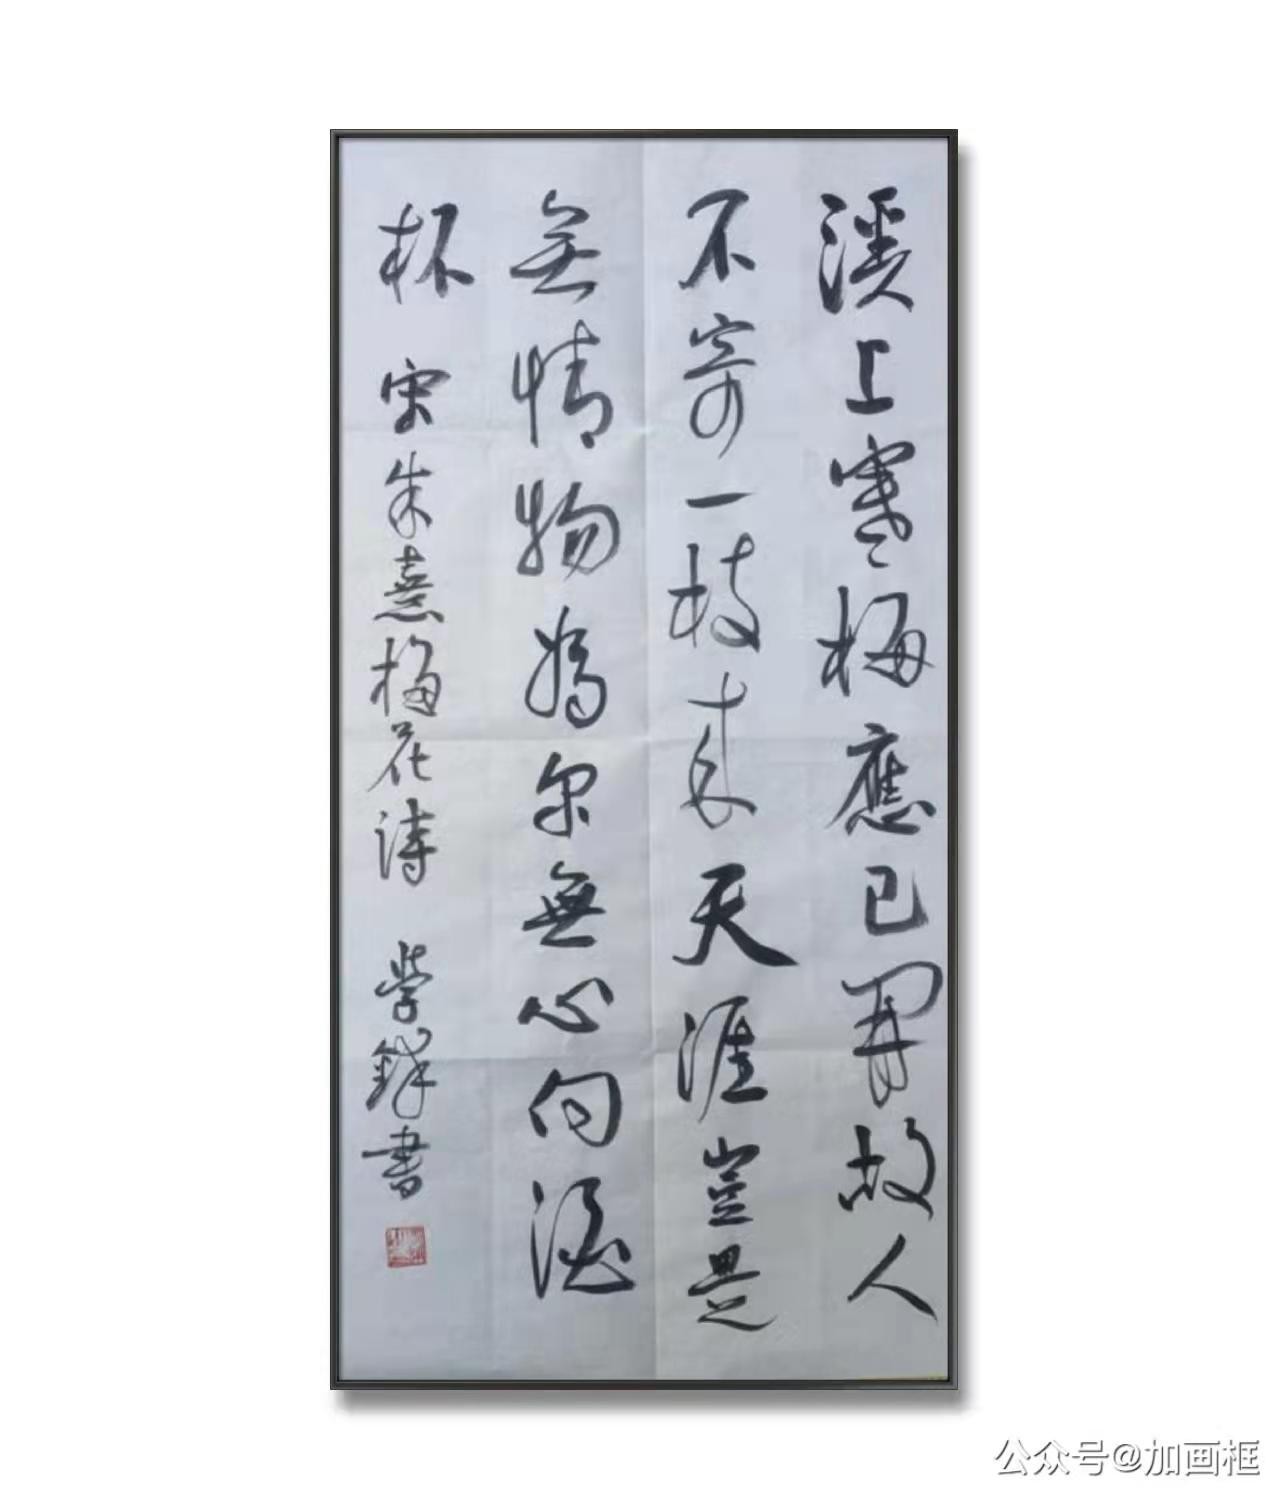 溪上寒梅應已開故人
不寄一枝来天涯豈是
無情物為尔無心向酒
杯 宋朱熹梅花诗 学鋒書
公众号@加画框